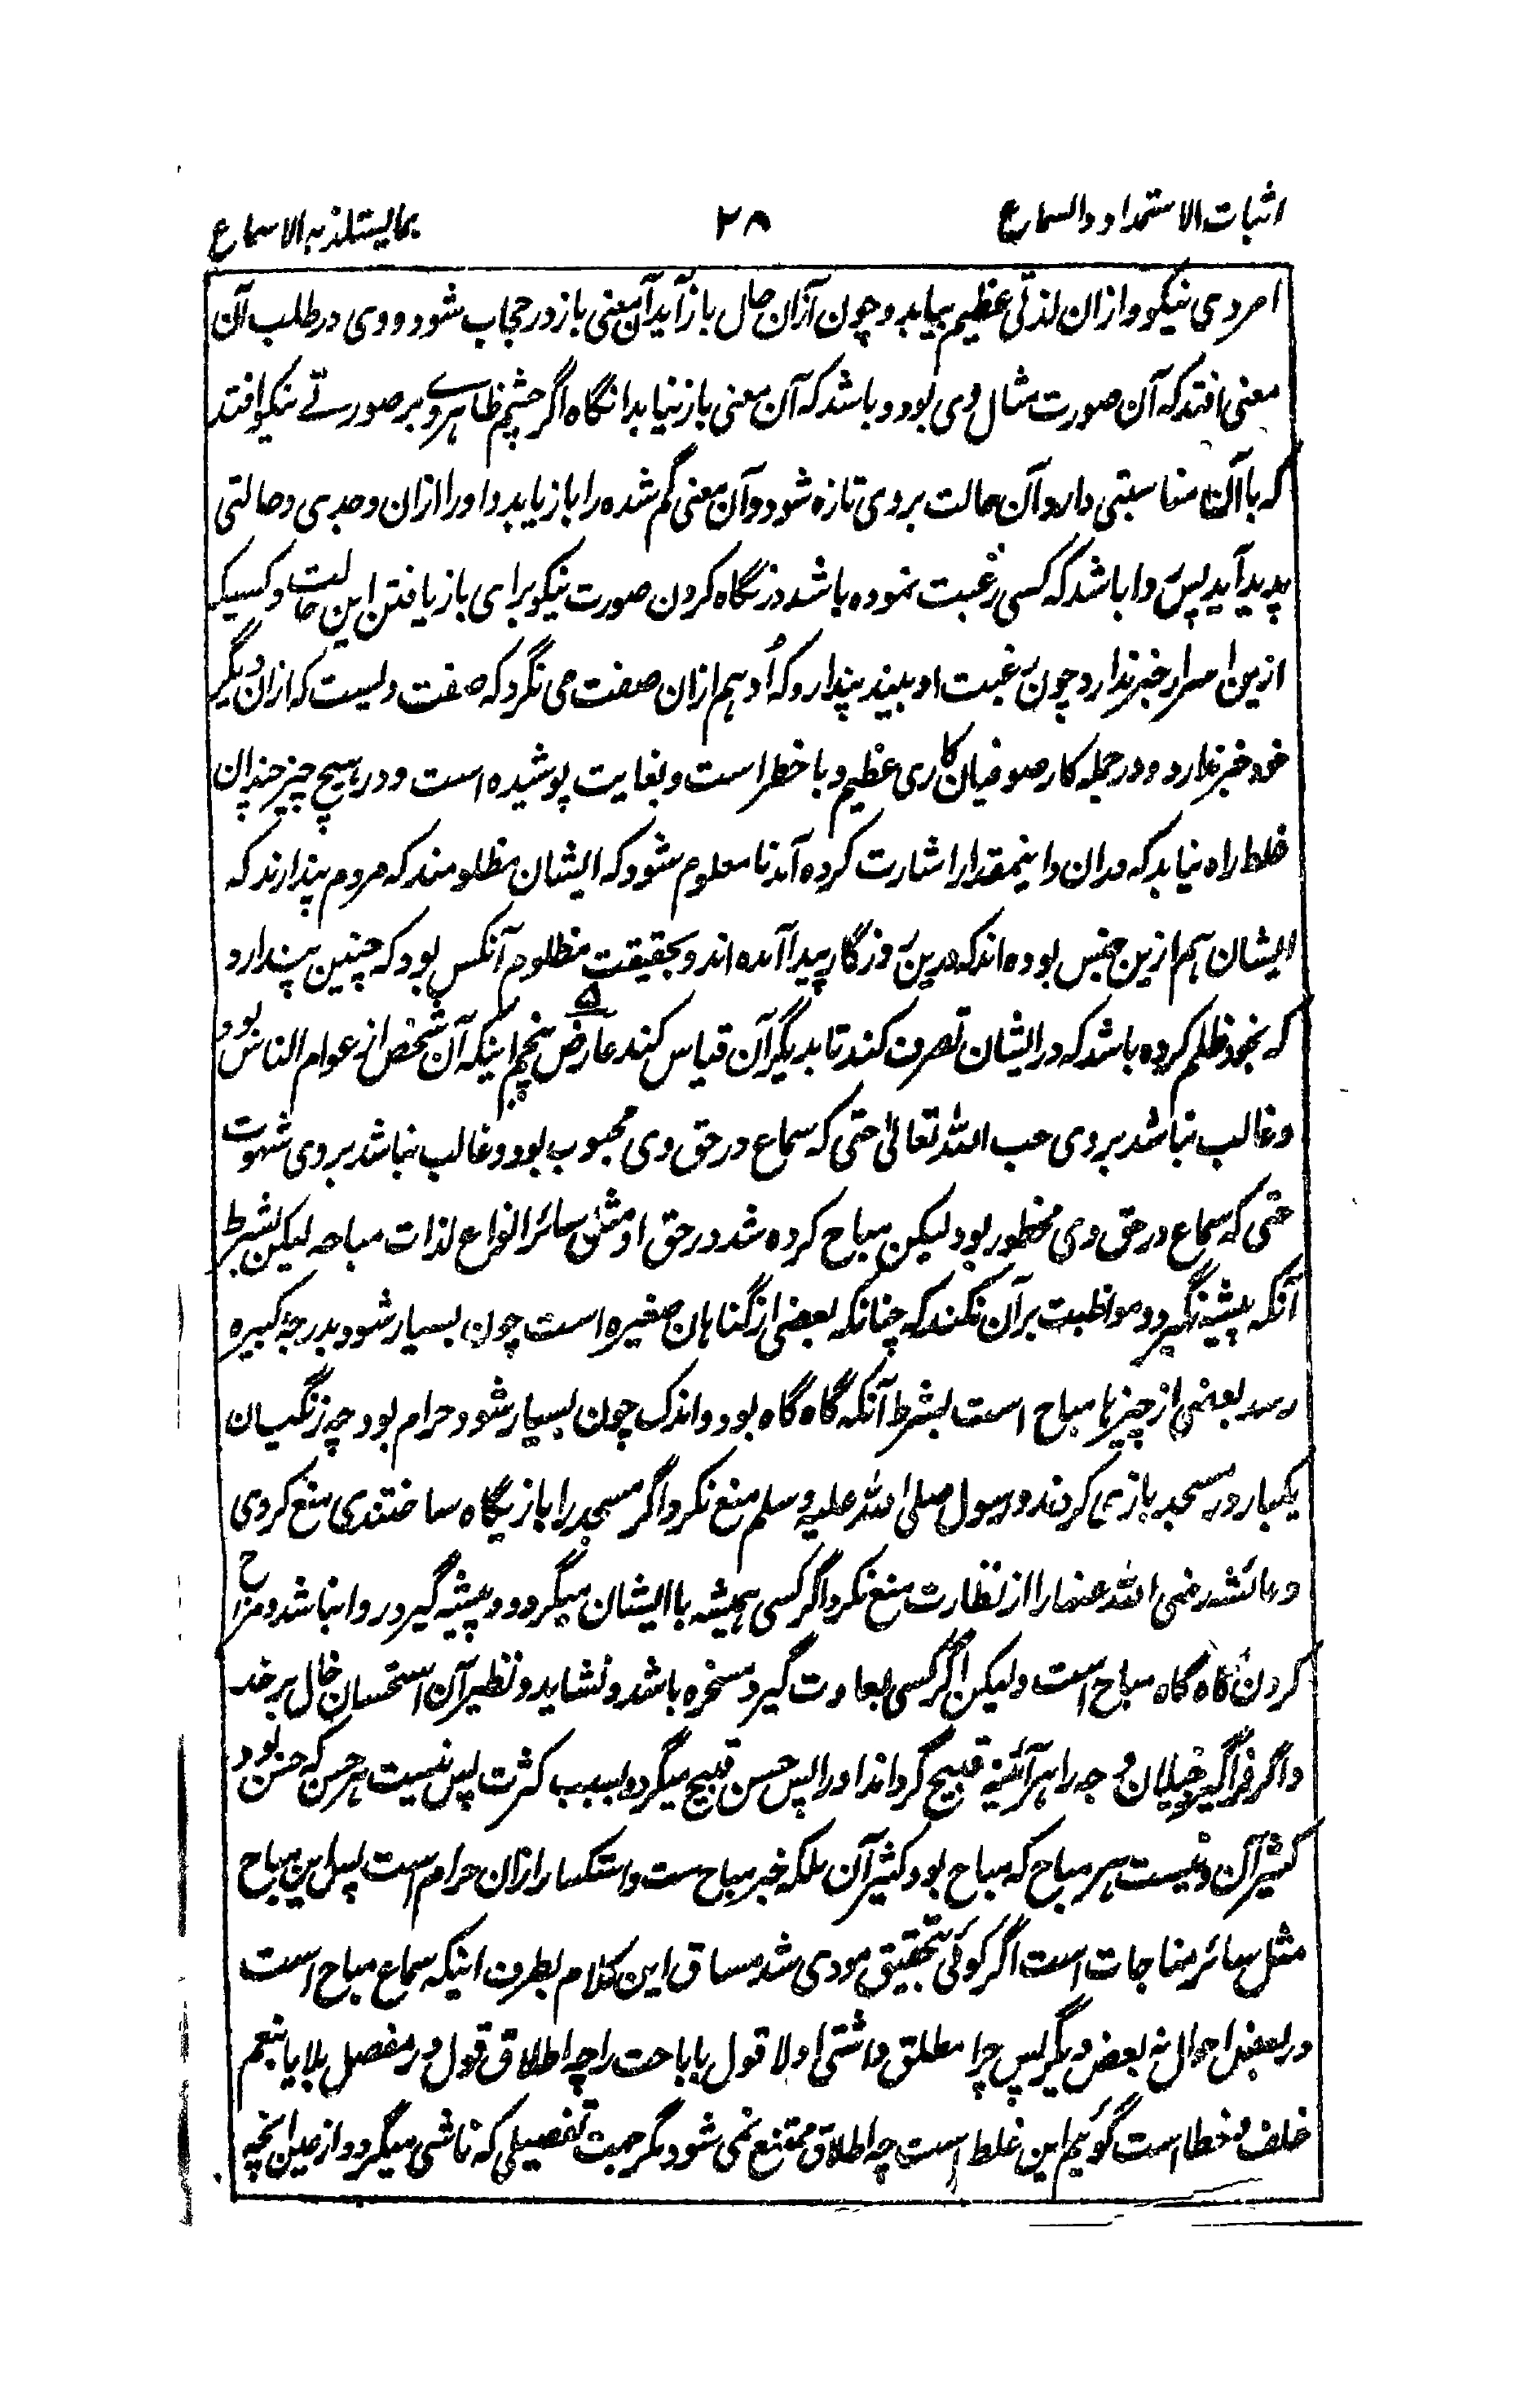 اثبات الاستمداد والسماع ۲۸ بما یستلذ به الاسماع
امردی نیکو و ازان لذتی عظیم بیابد و چون ازان حال باز آید آن معنی باز در حجاب شود و وی در طلب آن
معنی افتد که آن صورت مثال وی بود و باشد که آن معنی باز نیابد انگاه اگر چشم ظاهر وے بر صورتے نیکو افتد
که با آن مناسبتی دارد آن حالت بروی تازه شود و آن معنی گم شده را باز یابد و او را ازان وجدی و حالتی
پدید آید پس روا باشد که کسی رغبت نموده باشد در نگاه کردن صورت نیکو برای باز یافتن این حالت و کسیکه
ازین اسرار خبر ندارد چون رغبت او بیند پندارد که اُو هم ازان صفت می نگرد که صفت ویست که ازان دیگر
خود خبر ندارد و در جمله کار صوفیان کاری عظیم و با خطر است و بغایت پوشیده است و در هیچ چیز چندان
غلط راه نیابد که دران و اینمقدار اشارت کرده آمد تا معلوم شود که ایشان مظلومند که مردم پندارند که
ایشان هم ازین جنس بوده اند که درین روزگار پیدا آمده اند و بحقیقت مظلوم آنکس بود که چنین پندارد
که بخود ظلم کرده باشد که در ایشان تصرف کند تا بدیگر آن قیاس کند عارض پنجم ۵ اینکه آن شخص از عوام الناس بود
و غالب نباشد بروی حب الله تعالیٰ حتی که سماع در حق وی محبوب بود و غالب نباشد بروی شهوت
حتی که سماع در حق وی محظور بود لیکن مباح کرده شد در حق او مثل سائر انواع لذات مباحه لیکن بشرط
آنکه پیشه نگیرد و مواظبت بر آن نکند که چنانکه بعضی از گناهان صغیره است چون بسیار شود بدرجۀ کبیره
رسد بعضی از چیزها مباح است بشرط آنکه گاه گاه بود و اندک چون بسیار شود حرام بود چه زنگیان
یکبار در مسجد بازی کردند و رسول صلی الله علیه وسلم منع نکرد اگر مسجد را بازیگاه ساختندی منع کردی
و عائشه رضی الله عنها را از نظارت منع نکرد اگر کسی همیشه با ایشان میگردد و پیشه گیرد روا نباشد و مزاح
کردن گاه گاه مباح است ولیکن اگر کسی بعادت گیرد مسخره باشد و نشاید و نظیر آن استحسان خال بر خد
و اگر فراگیرد خیلان وجه را هر آئینه قبیح گرداند او را پس حسن قبیح میگردد بسبب کثرت پس نیست هر حسن که حسن بود
کثیر آن و نیست هر مباح که مباح بود کثیر آن بلکه خبز مباح ست و استکسار ازان حرام است پس این مباح
مثل سائر مناجات است اگر گوئی تحقیق مودی شد مساق این کلام بطرف اینکه سماع مباح است
در بعض احوال نه بعض دیگر پس چرا مطلق داشتی اولا قول باباحت را چه اطلاق قول در مفصل بلا یا بنعم
خلف و خطا است گوئیم این غلط است چه اطلاق ممتنع نمی شود مگر جهت تفصیلی که ناشی میگردد از عین آنچه